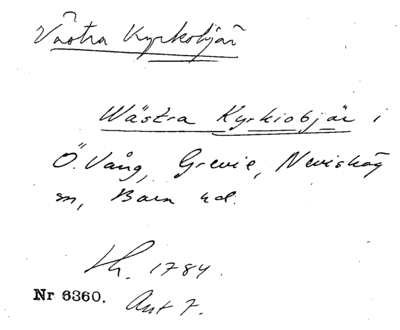 Västra Kyrkobjär
Wästra Kyrkiobjär i
Ö. Vång, Grevie, Nevishög
sn, Bara hd.
Lh. 1784.
Nr 6360. Akt 7.